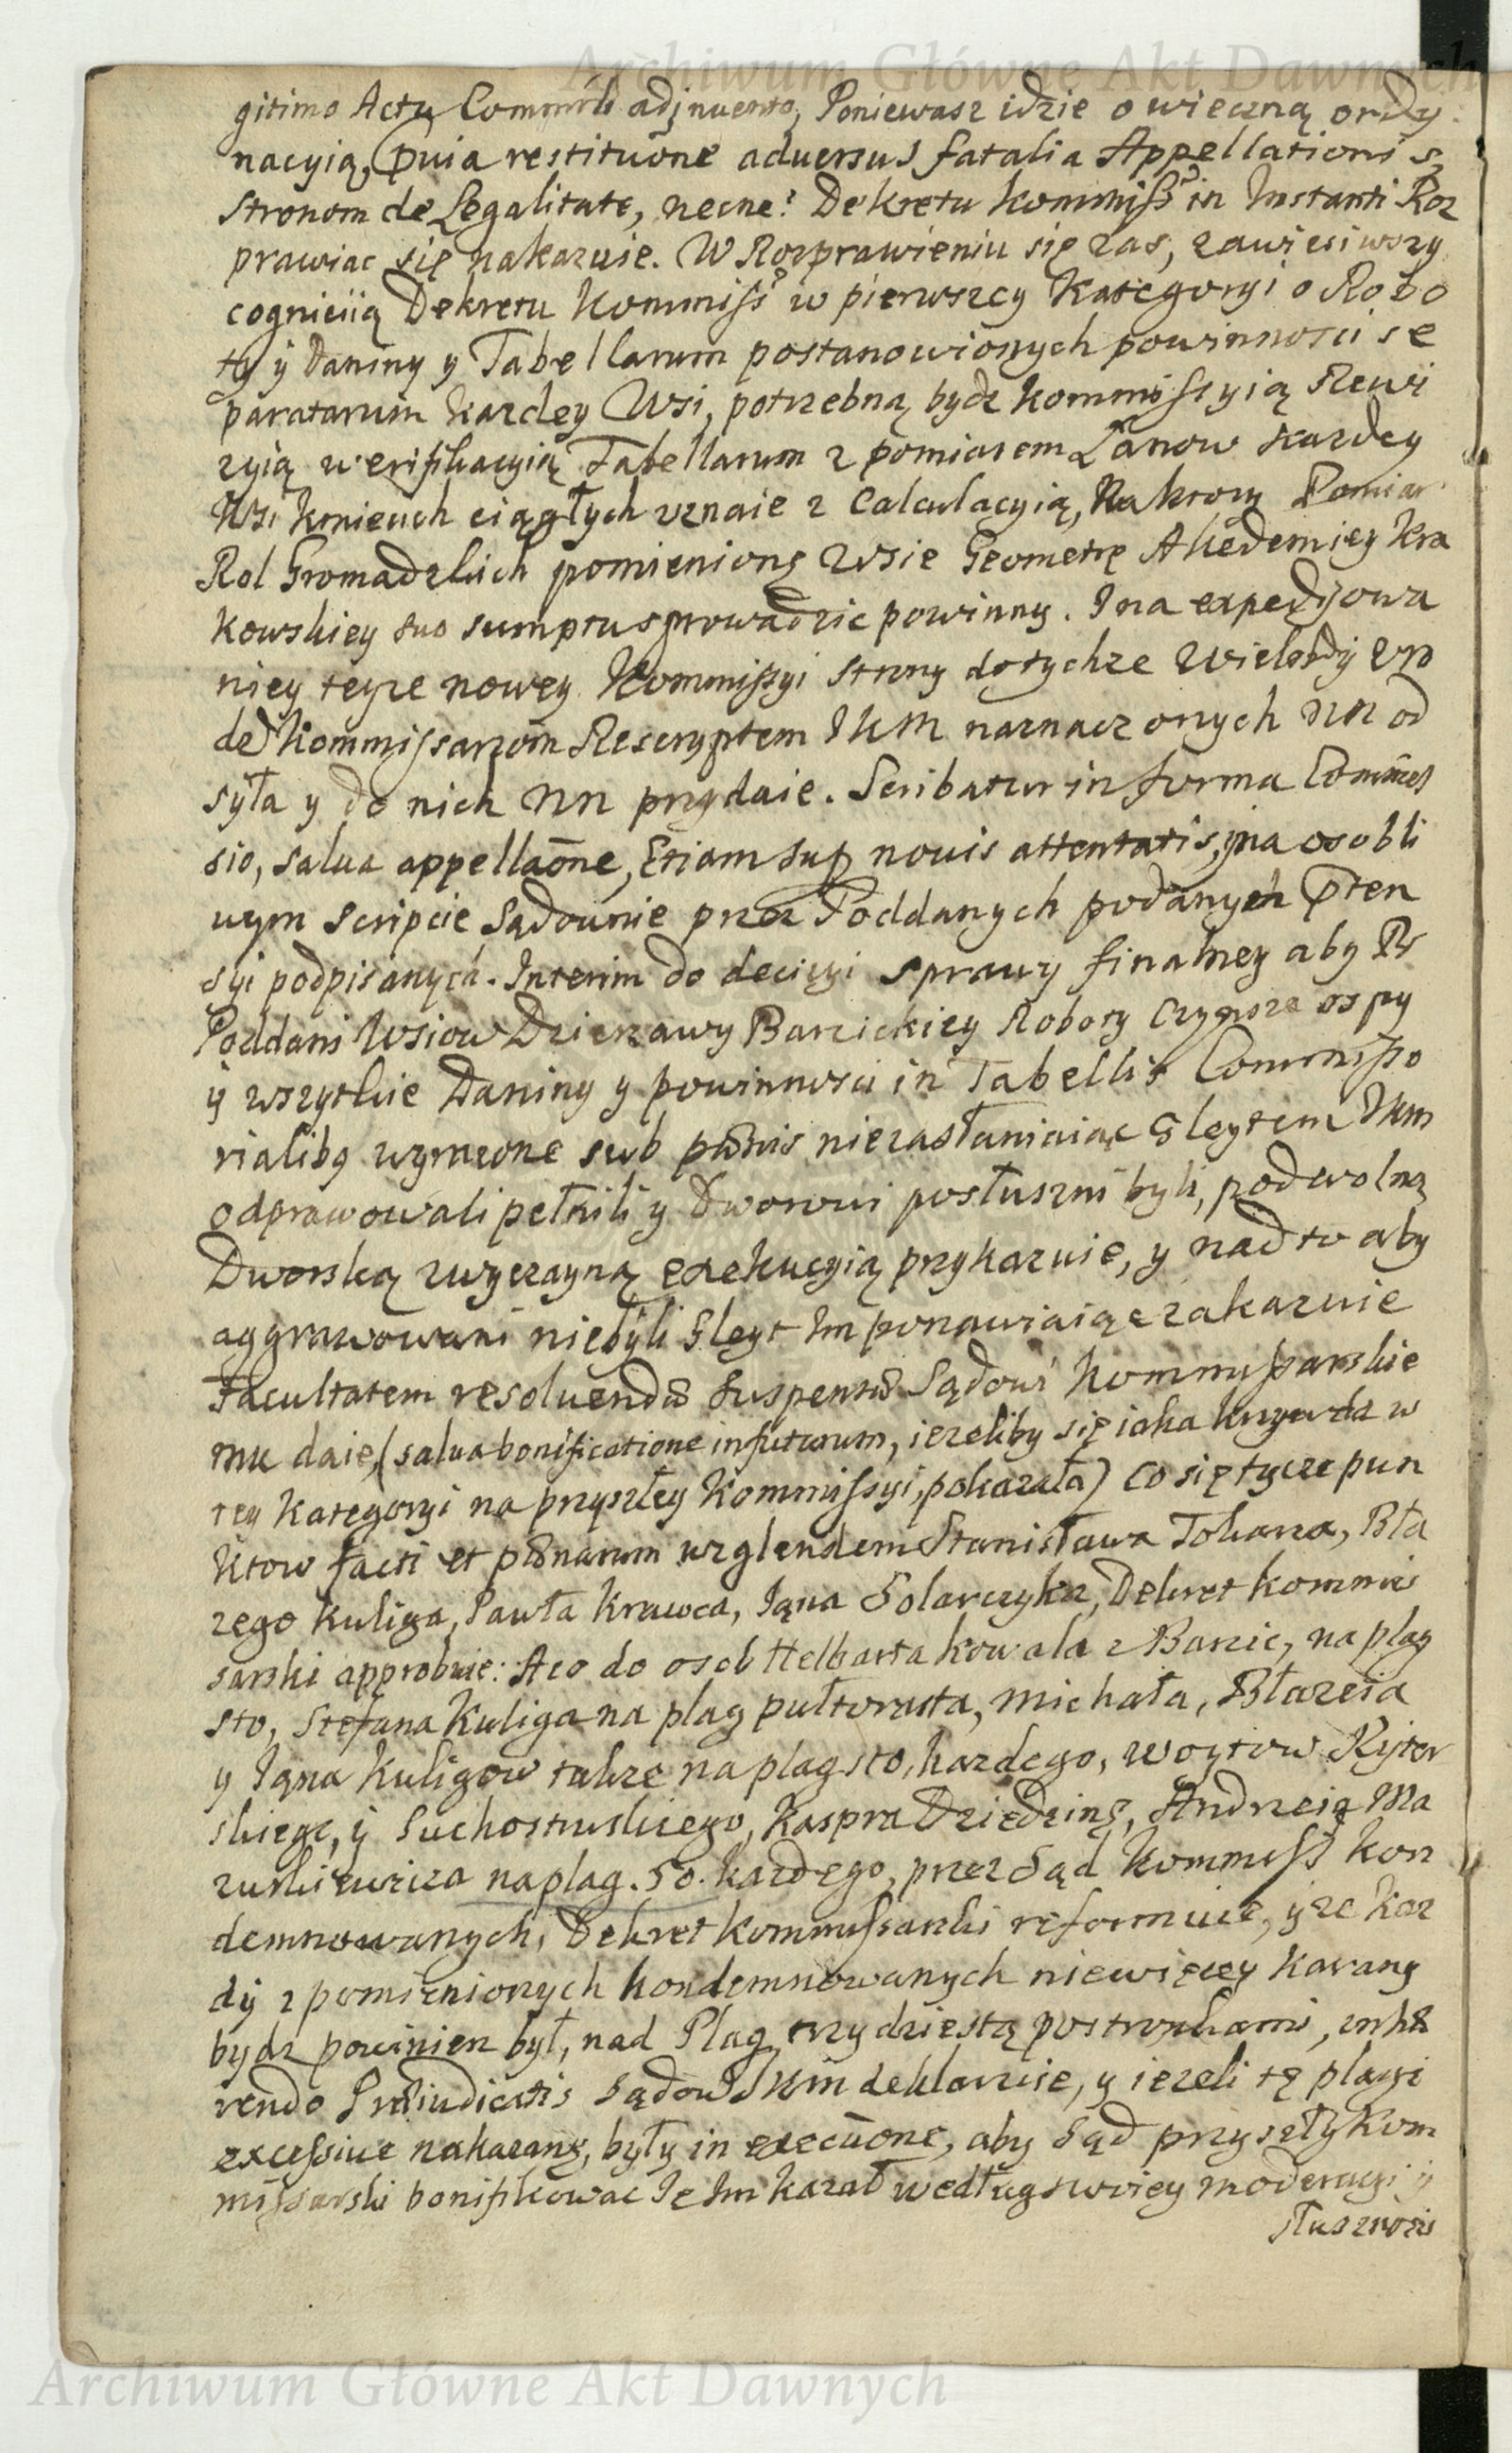 Archiwum Główne Akt Dawnych
gitimo Actu Commrli adjnuento, Poniewasz idzie o wieczną ordy
nacyią, pvia restitutione aduersus fatalia Appellationis
Stronom de Legalitate, necne? Dekretu Kommiss in Instanti Roz
prawiac się nakazuie. W Rozprawieniu się zas, zawiesiwszy
cognicią Dekretu Kommiss w pierwszey Kategoryi o Robo
ty ÿ Daniny y Tabellarum postanowionych powinnosci se
paratarum kazdey Wsi, potrzebną bydz kommissyią Rewi
zyią weryfikacyią Tabellarum z pomiarem Łanow kazdey
Wsi kmiecich ciągłych vznaie z Calculacyią, Na ktory Pomiar
Rol Gromadzkich pomienione Wsie Geometrę Akademiey Kra
kowskiey suo sumptu sprowadzic powinny. I na expedyowa
niey teyze nowey Kommissyi strony dotychze Wielebdÿ Vro
ded Kommissarzom Rescryptem JKM naznaczonych NN od
syła y do nich NN przydaie. Scribatur in forma Commis
sio, salua appellaone, Etiam sup nouis attentatis, yna osobli
wym scripcie Sądownie przez Poddanych podanych pten
syi podpisanych. Interim do decizyi sprawy finalney aby Pr
Poddani Wsiow Dzierzawy Barzickiey Roboty Czynsze ospy
ÿ wszytkie Daniny y powinnosci in Tabellis Commisso
rialibq wyrazone sub pœnis niezasłaniaiąc Gleytem JKM
odprawowali pełnili y Dworowi posłuszni byli, pod wolną
Dworską zwyczayną exekucyią przykazuie, y nadto aby
aggrawowani niebyli Gleyt Im ponawiaiąc zakazuie
Facultatem resoluendœ suspensœ Sądowi Kommissarskie
mu daie, (salua bonificatione infuturum, iezeliby się iaka krzywda w
tey Kategoryi na przyszłey Kommissyi, pokazała) Co się tycze pun
ktow facti et pœnarum wzglendem Stanisława Tokarza, Bła
zego Kuliga, Pawła Krawca, Jana Solarczyka, Dekret kommis
sarski approbuie: Aco do osob Helbarta kowala z Barzic, na plag
sto, Stefana Kuliga na plag pułtorasta, Michała, Błazeia
y Jana Kuligow takze na plag sto, kazdego, woytow Ryter
skiego, ÿ Suchostruskiego, Kaspra Dziedzine, Andrzeia Ma
zurkiewicza na plag. 50. kazdego, przez Sąd Kommiss kon
demnowanych, Dekret kommissarski reformuie, yze kaz
dÿ z pomienionych kondemnowanych niewięcey karany
bydz powinien był, nad Plag trzydziestą postronkami, inhæ
rendo Præiudicatis Sądow JKM deklaruie, y iezeli tę plagi
excessiue nakazane, były in execuone, aby Sąd przyszłÿ Kom
missarski bonifikowac Je Im kazał według swoiey moderacyi ÿ
słusznosci
Archiwum Główne Akt Dawnych